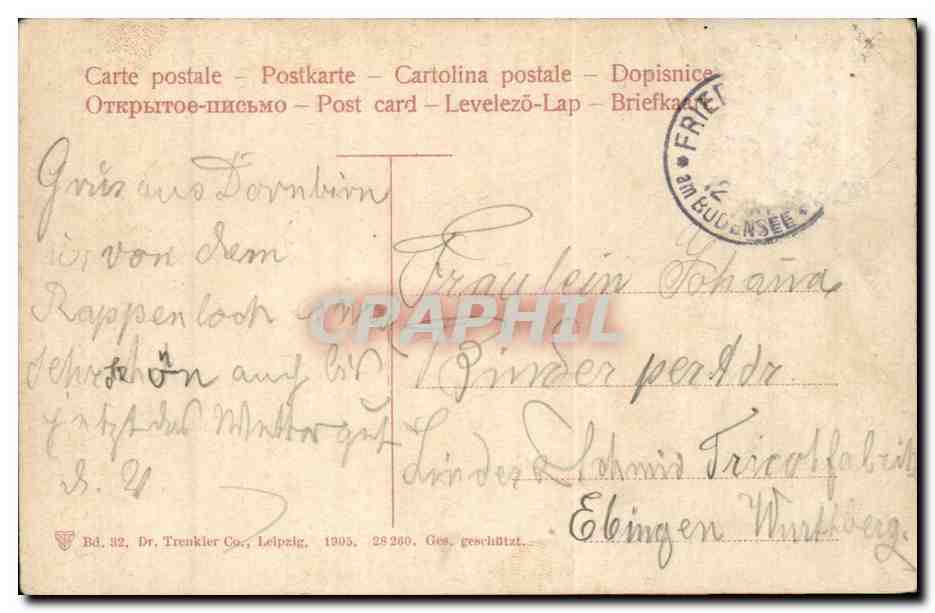 Carte postale – Postkarte – Cartolina postale – Dopisnice
Открытое-письмо – Post card – Levelező-Lap – Briefkaart
FRIED
am BODENSEE
Grus aus Dornbirn
von dem
Rappenloch
sehr schön auch bis
jetzt das Wetter gut
Fräulein Johana
Binder per Adr.
Linder & Schmid Tricotfabrik
Ebingen Württberg.
CPAPHIL
Bd. 32. Dr. Trenkler Co., Leipzig. 1905. 28 260. Ges. geschützt.